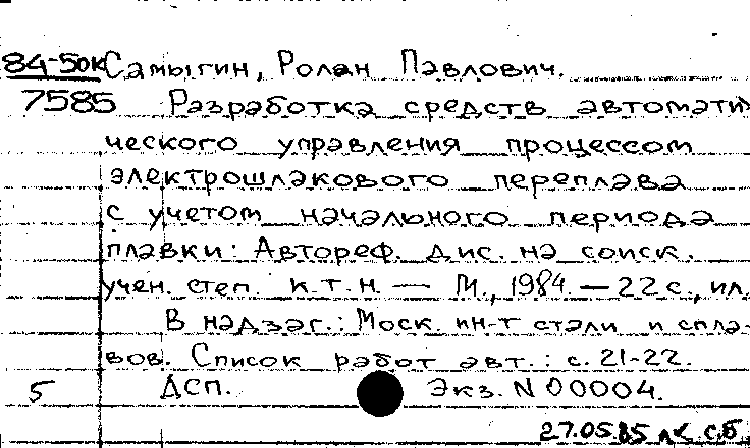 84-50к Самыгин, Ролан Павлович.
7585 Разработка средств автомати
ческого управления процессом
электрошлакового переплава
с учетом начального периода
плавки: Автореф. дис. на соиск.
учен. степ. к.т.н. — М., 1984. — 22 с., ил.
В надзаг.: Моск. ин-т стали и спла-
вов. Список работ авт.: с. 21-22.
5 ДСП. Экз. N 00004.
27.05.85 лк. с.б.